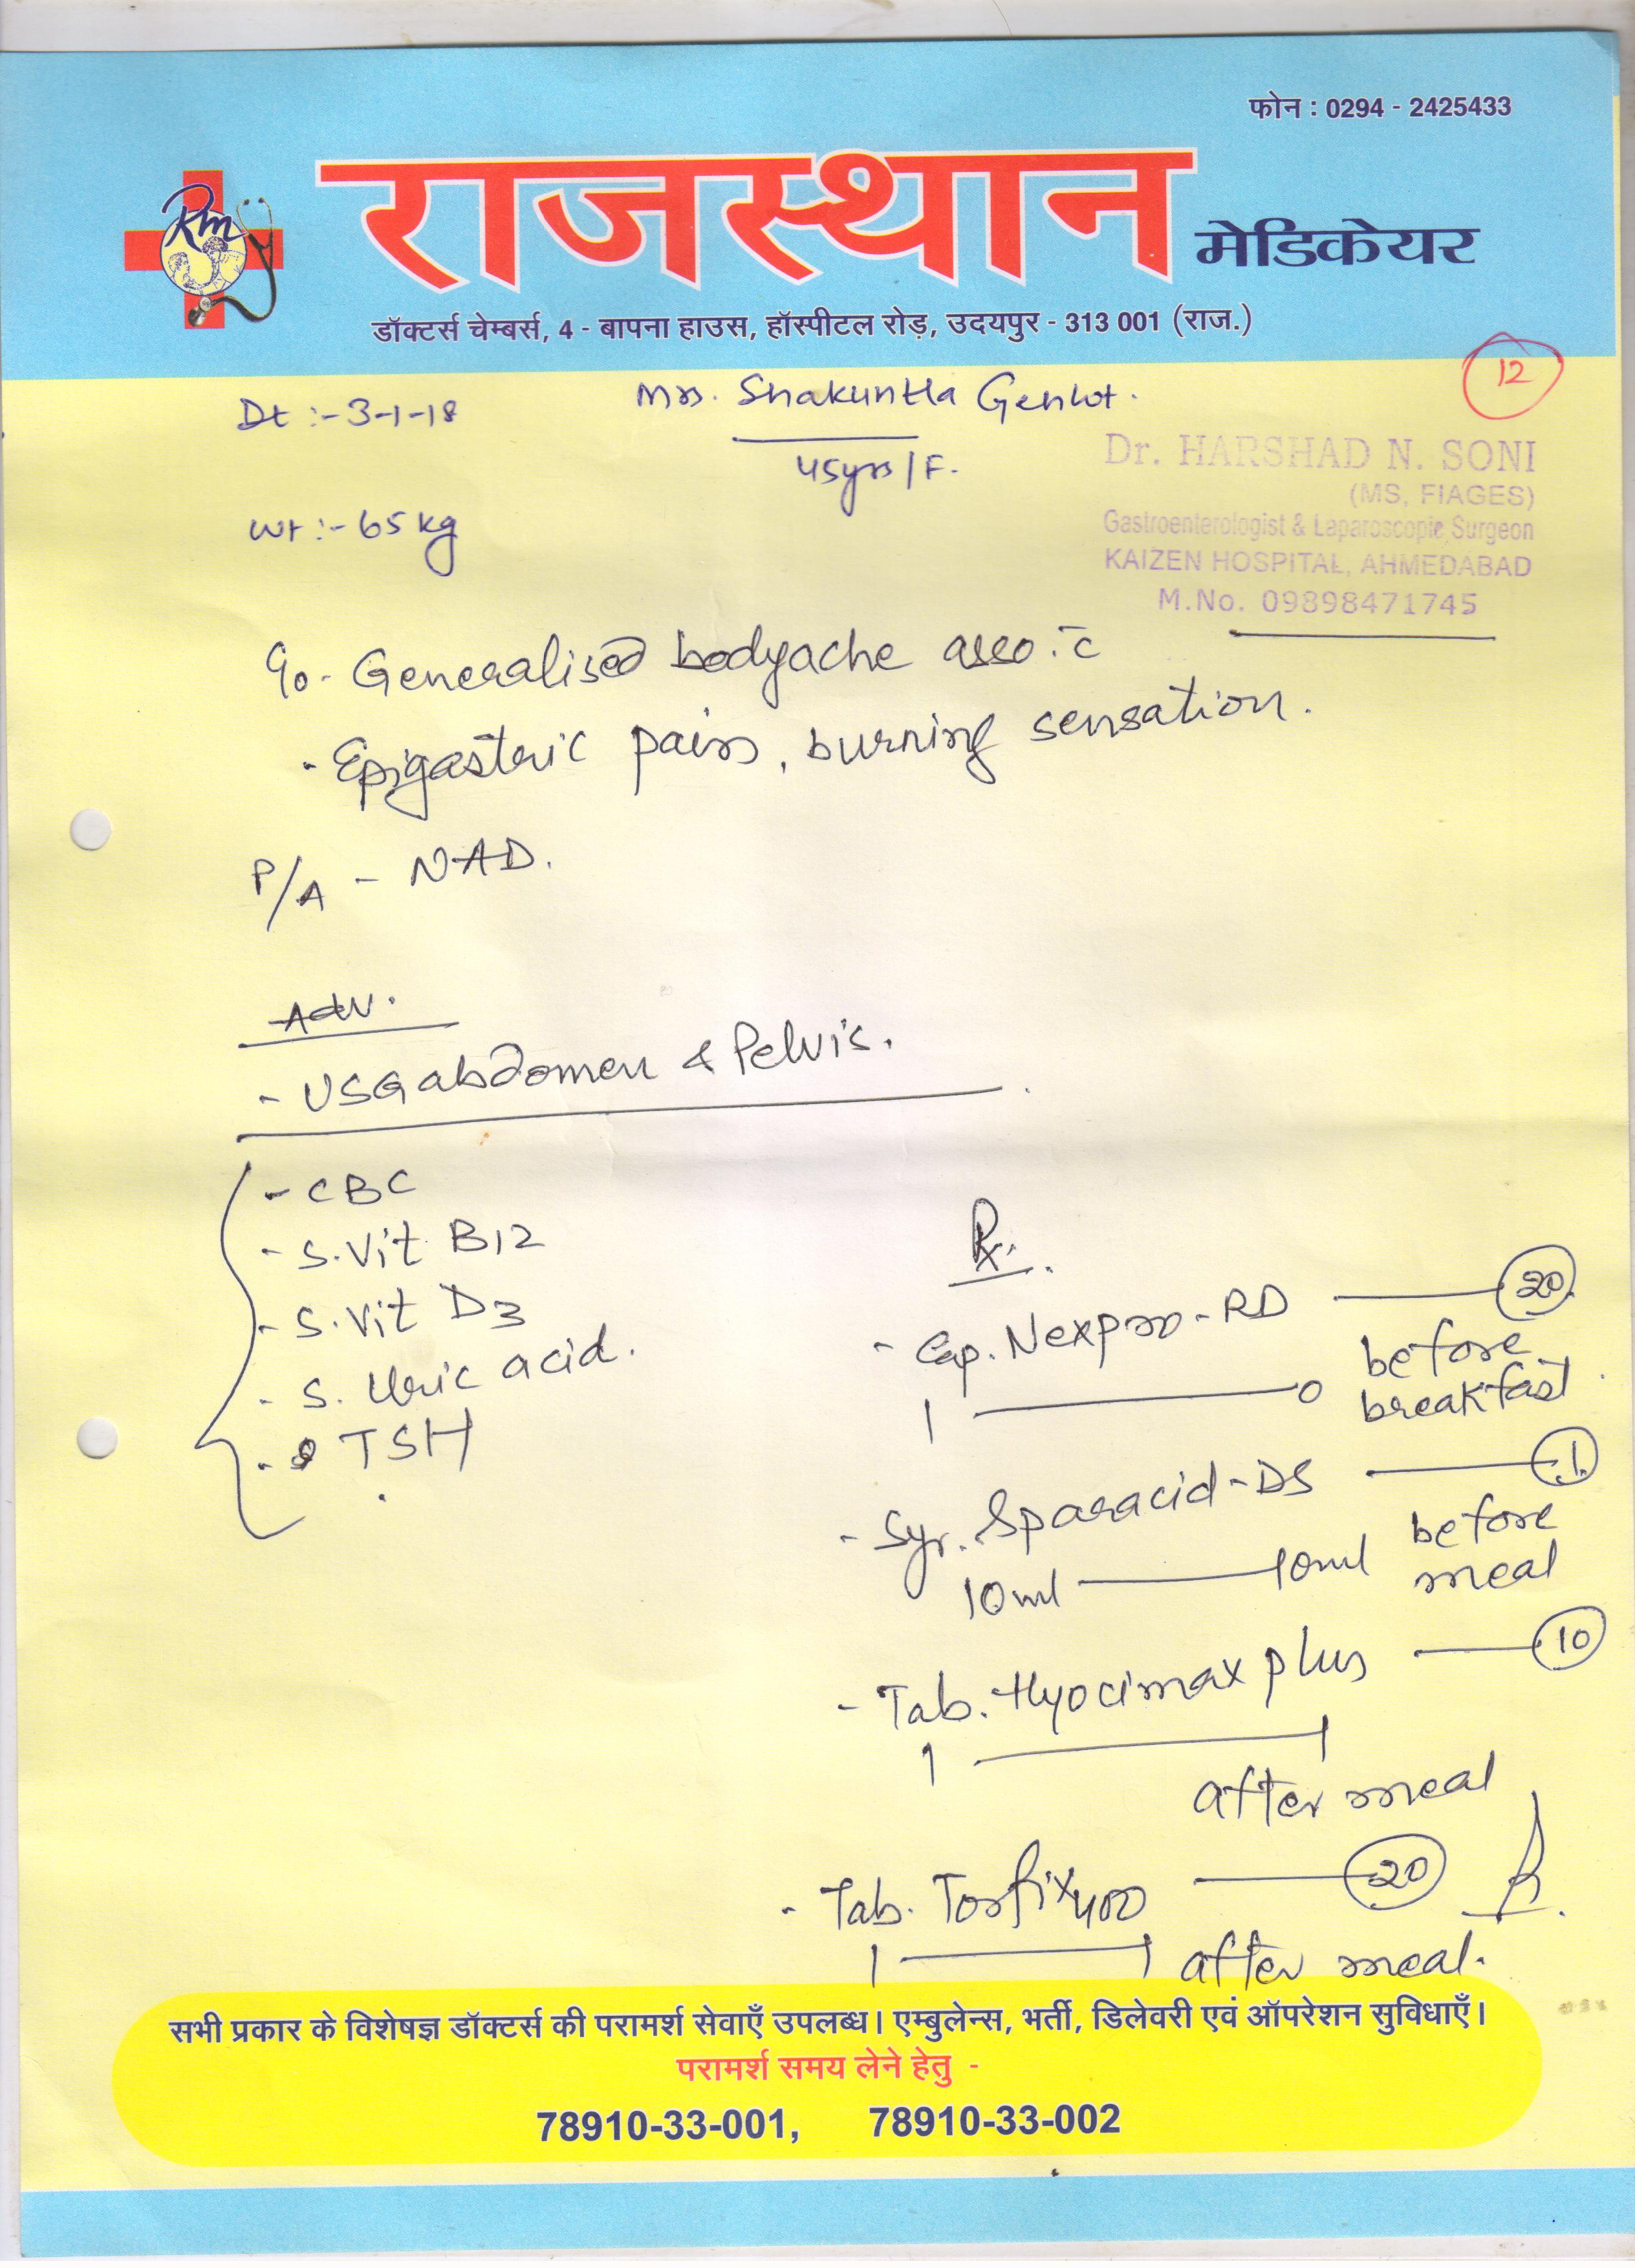 फोन : 0294 - 2425433
Rm
राजस्थान मेडिकेयर
डॉक्टर्स चेम्बर्स, 4 - बापना हाउस, हॉस्पीटल रोड़, उदयपुर - 313 001 (राज.)
12
Dt :- 3-1-18
Mrs. Shakuntla Gehlot.
45yrs / F.
Wt :- 65 kg
Dr. HARSHAD N. SONI
(MS, FIAGES)
Gastroenterologist & Laparoscopic Surgeon
KAIZEN HOSPITAL, AHMEDABAD
M.No. 09898471745
c/o - Generalised bodyache asso. c̄
- Epigasteric pain, burning sensation.
P/A - NAD.
Adv.
- USG abdomen & Pelvis.
- CBC
- S. Vit B12
- S. Vit D3
- S. Uric acid.
- TSH
Rx.
- Cap. Nexpro-RD — 20
1 — 0 before breakfast
- Syr. Sparacid-DS — 1
10ml — 10ml before meal
- Tab. Hyocimax plus — 10
1 — 1
after meal
- Tab. Torfix 400 — 20
1 — 1 after meal.
सभी प्रकार के विशेषज्ञ डॉक्टर्स की परामर्श सेवाएँ उपलब्ध। एम्बुलेन्स, भर्ती, डिलेवरी एवं ऑपरेशन सुविधाएँ।
परामर्श समय लेने हेतु -
78910-33-001, 78910-33-002